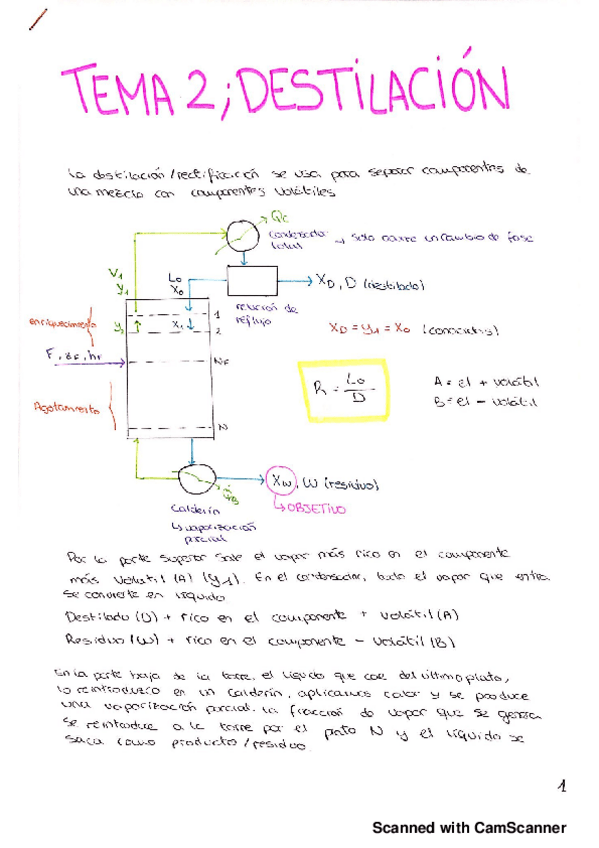 TEMA 2; DESTILACIÓN
La destilación/rectificación se usa para separar componentes de
una mezcla con componentes volátiles
Qc
condensador total → solo ocurre un cambio de fase
V1
y1
Lo
Xo
XD, D (destilado)
relación de reflujo
enriquecimiento
y2
X1
1
2
XD = y1 = Xo (conocentes)
F, zF, hF
NF
R = Lo/D
A = el + volátil
B = el - volátil
Agotamiento
N
XW, W (residuo)
Calderín
↳ OBJETIVO
↳ vaporización parcial
Por la parte superior sale el vapor más rico en el componente
más volátil (A) (y1). En el condensador, todo el vapor que entra
se convierte en líquido
Destilado (D) + rico en el componente + volátil (A)
Residuo (W) + rico en el componente - volátil (B)
En la parte baja de la torre, el líquido que cae del último plato,
lo reintroduzco en un calderín, aplicamos calor y se produce
una vaporización parcial. La fracción de vapor que se genera
se reintroduce a la torre por el plato N y el líquido se
saca como producto/residuo
1
Scanned with CamScanner